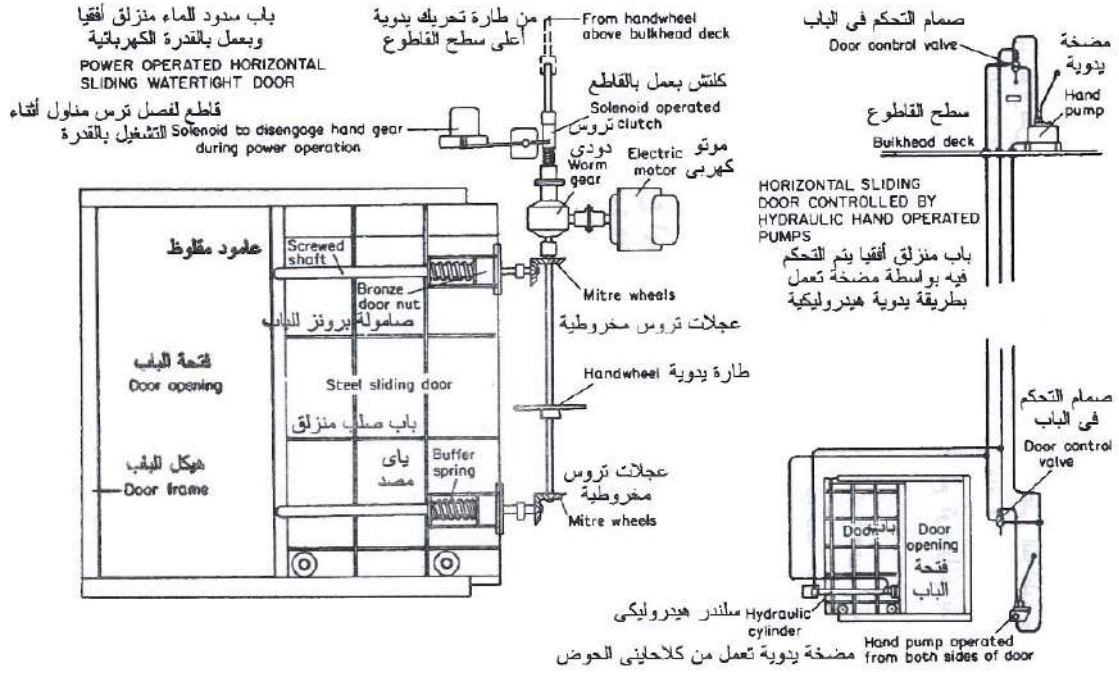 باب سدود للماء منزلق أفقيا
وبعمل بالقدرة الكهربائية
POWER OPERATED HORIZONTAL
SLIDING WATERTIGHT DOOR
من طارة تحريك يدوية
أعلى سطح القاطوع
From handwheel
above bulkhead deck
كلتش بعمل بالقاطع
Solenoid operated
clutch
قاطع لفصل ترس مناول أثناء
التشغيل بالقدرة
Solenoid to disengage hand gear
during power operation
تروس
دودى
Worm
gear
موتو
كهربى
Electric
motor
عامود مقلوظ
Screwed
shaft
Bronze
door nut
صامولة برونز للباب
Mitre wheels
عجلات تروس مخروطية
فتحة الباب
Door opening
Steel sliding door
باب صلب منزلق
Handwheel طارة يدوية
هيكل الباب
Door frame
ياى
مصد
Buffer
spring
عجلات تروس
مخروطية
Mitre wheels
صمام التحكم فى الباب
Door control valve
مضخة
يدوية
Hand
pump
سطح القاطوع
Bulkhead deck
HORIZONTAL SLIDING
DOOR CONTROLLED BY
HYDRAULIC HAND OPERATED
PUMPS
باب منزلق أفقيا يتم التحكم
فيه بواسطة مضخة تعمل
بطريقة يدوية هيدروليكية
صمام التحكم
فى الباب
Door control
valve
Door
باب
Door
opening
فتحة
الباب
سلندر هيدروليكى
Hydraulic
cylinder
Hand pump operated
from both sides of door
مضخة يدوية تعمل من كلاجاينى الحوض